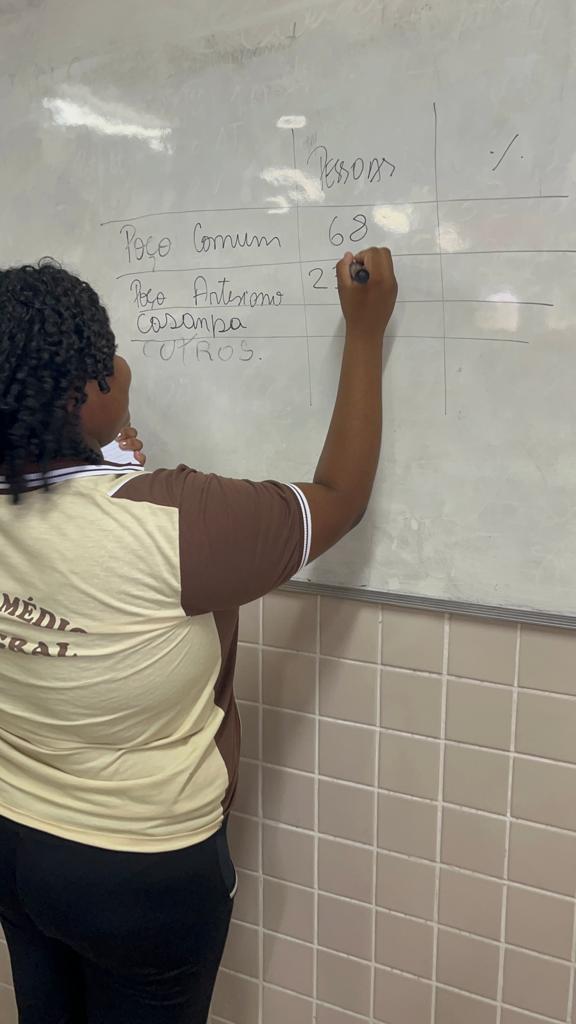 PESSOAS %
Poço Comum 68
Poço Artesiano 2
Cosanpa
OUTROS.
MÉDIO
ERAL